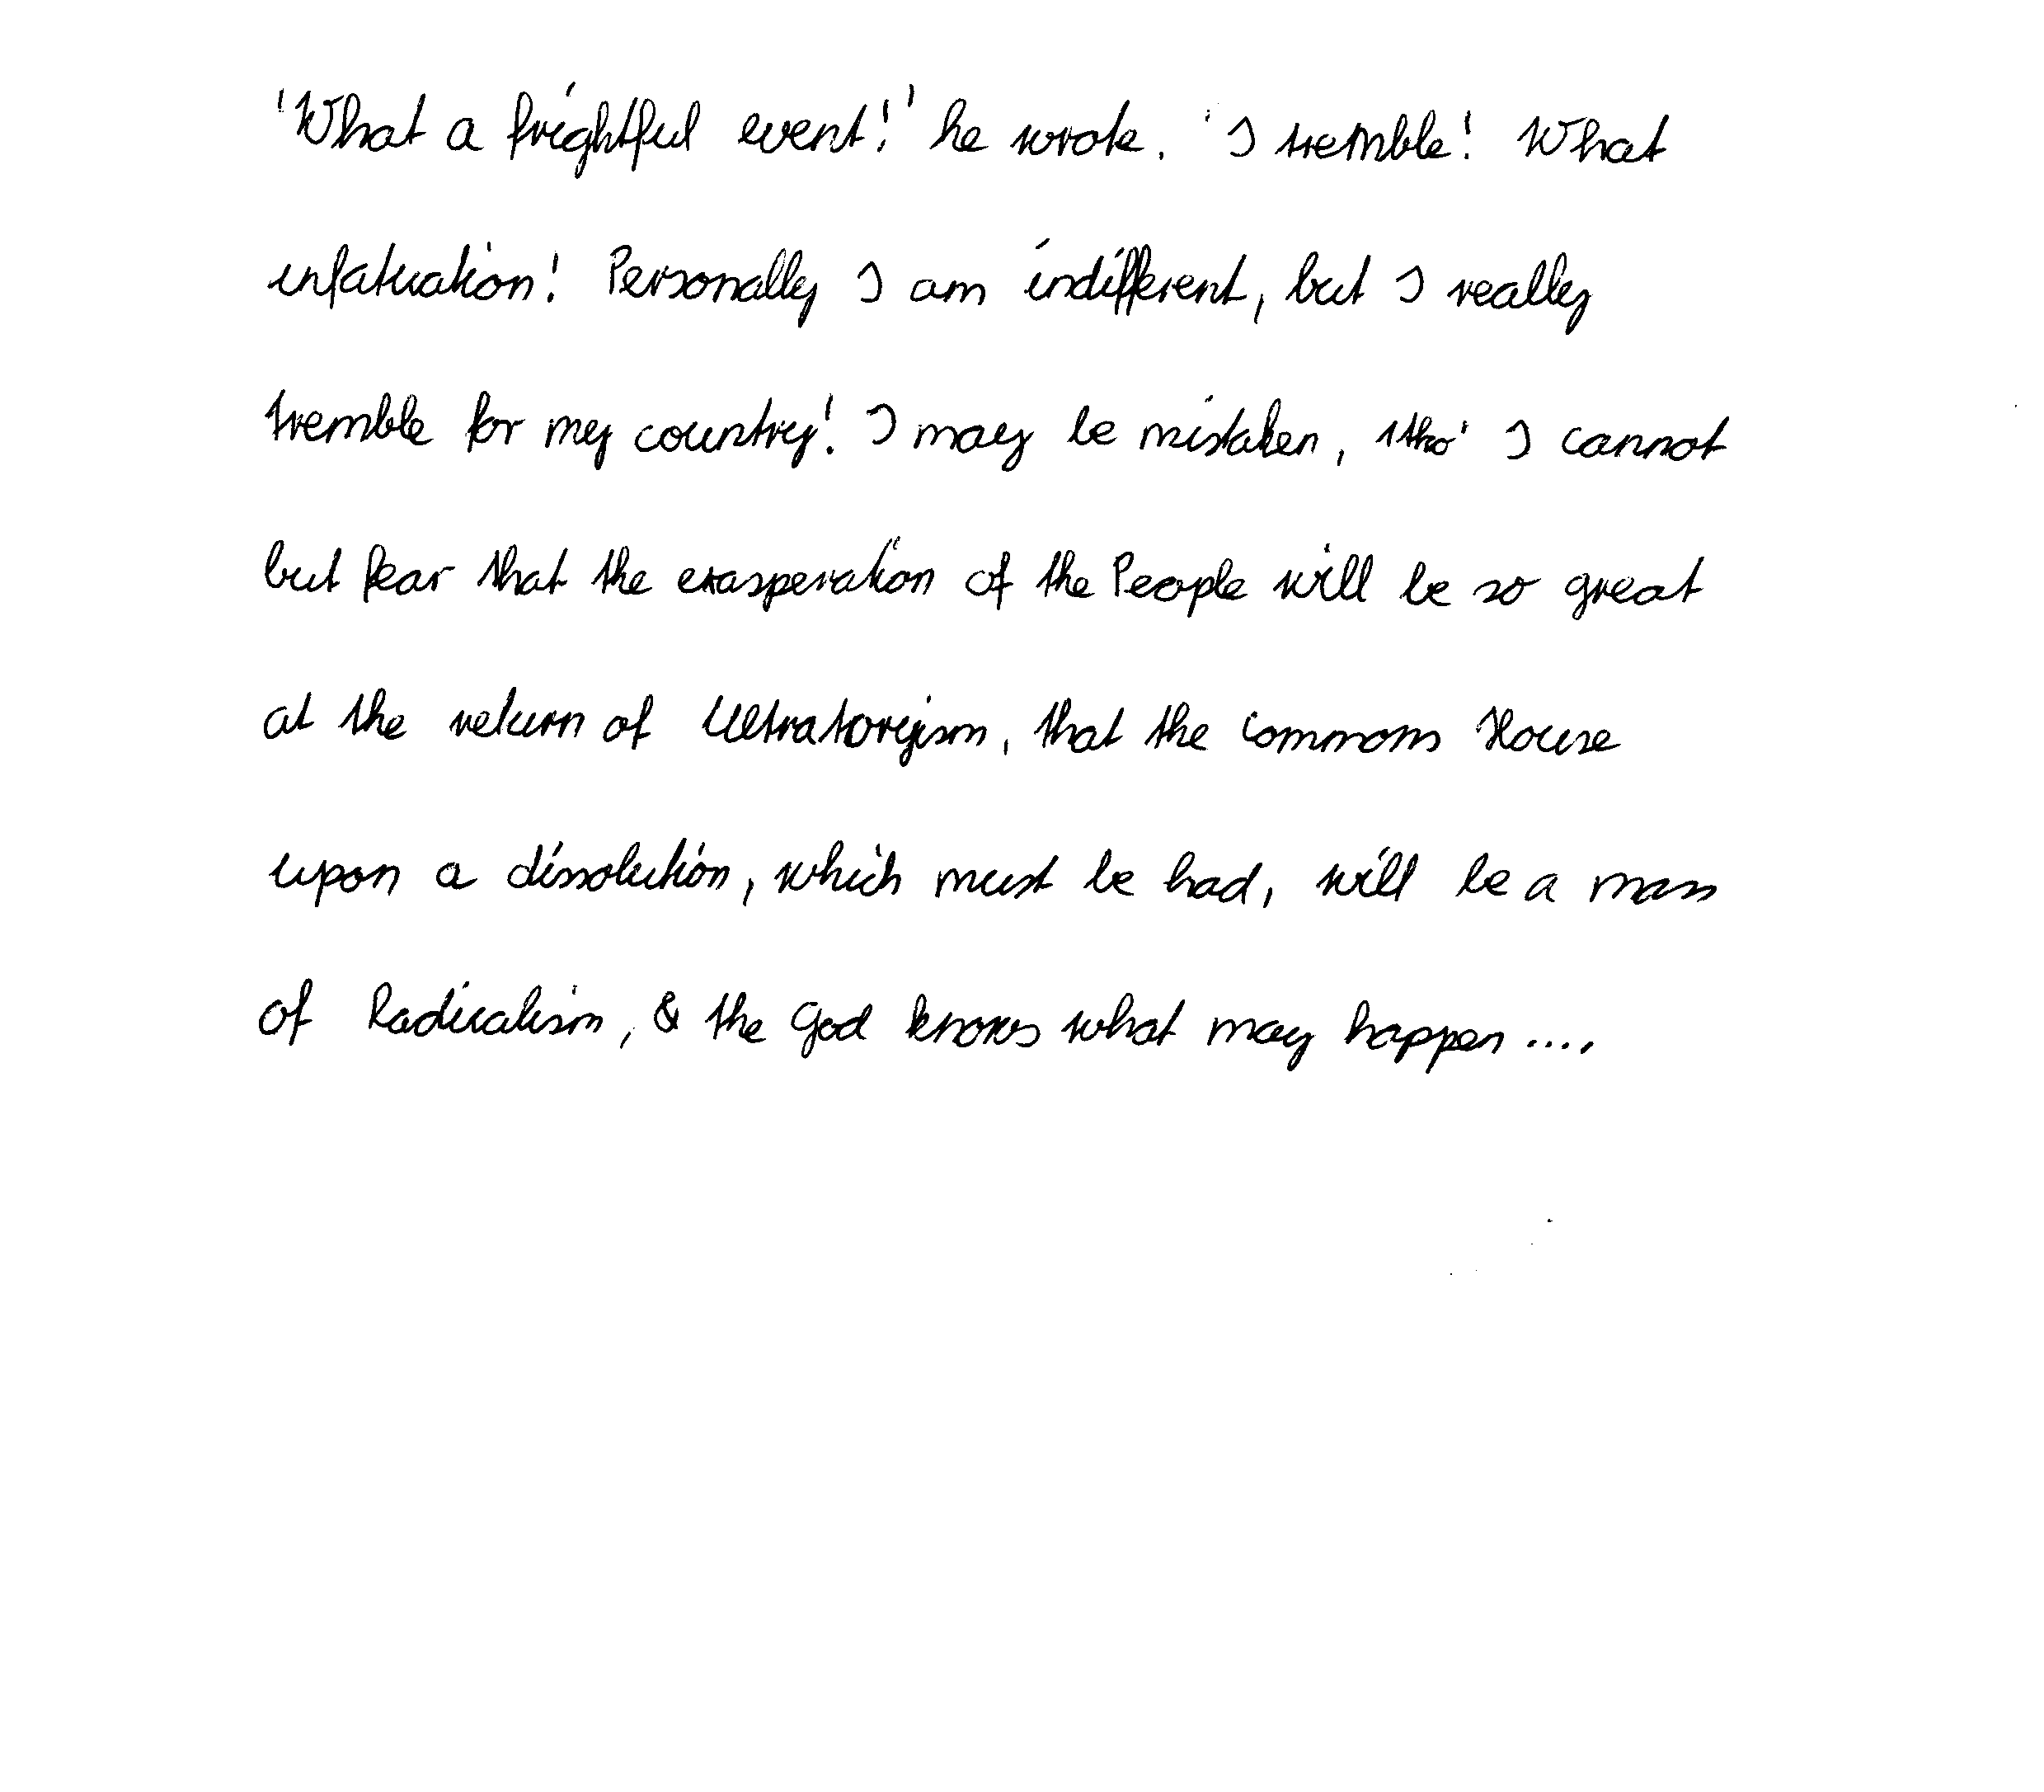 'What a frightful event!' he wrote. 'I tremble! What
infatuation! Personally I am indifferent, but I really
tremble for my country! I may be mistaken, 'tho' I cannot
but fear that the exasperation of the People will be so great
at the return of Ultratoryism, that the Commons House
upon a dissolution, which must be had, will be a mass
of Radicalism, & the God knows what may happen ....